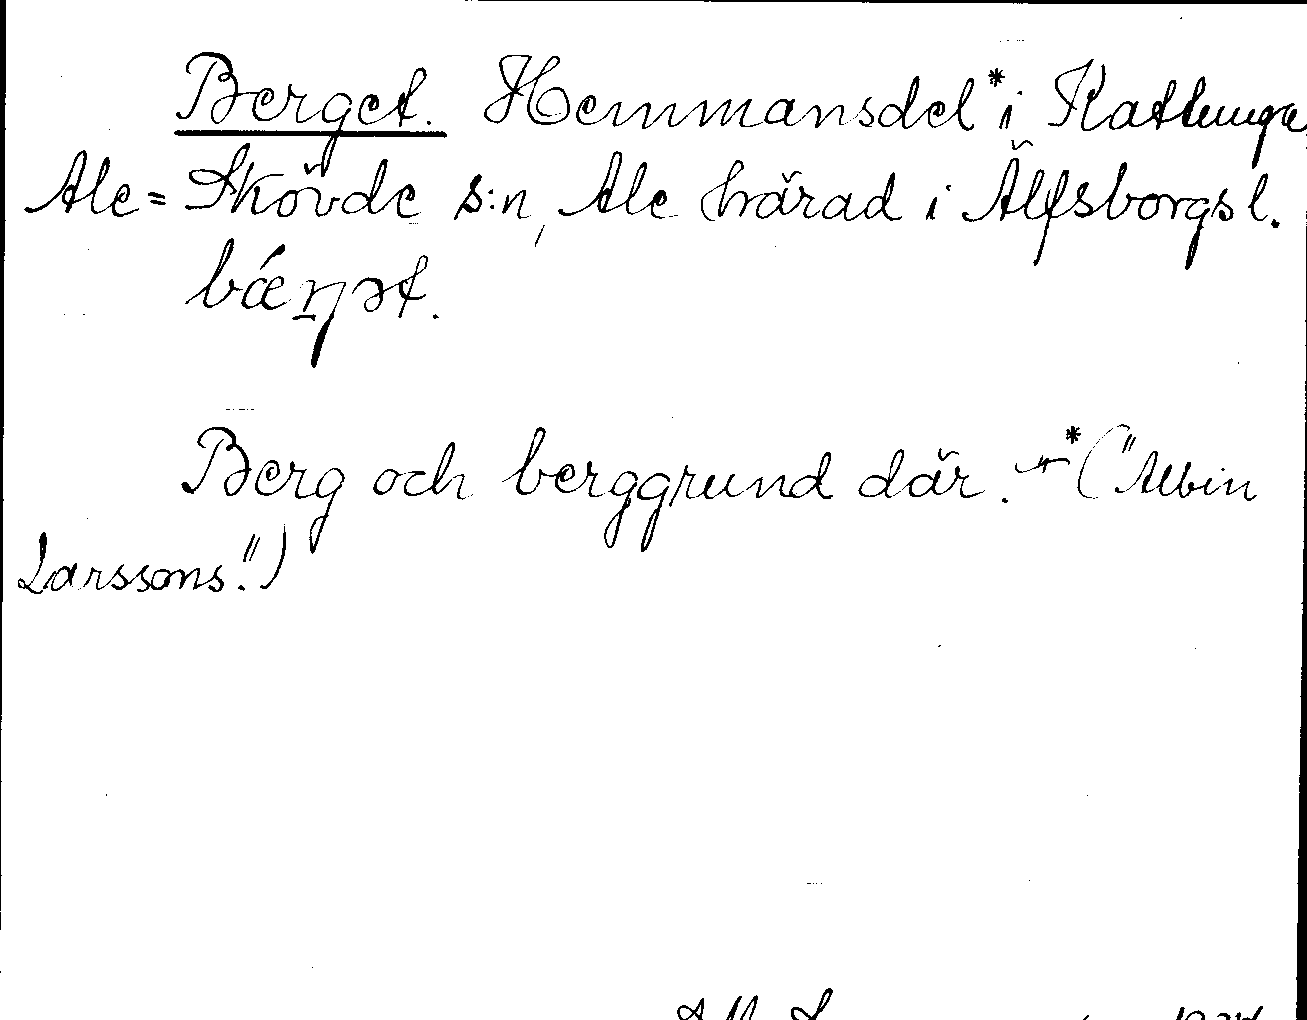 Berget. Hemmansdel* i Kattunga
Ale=Skövde s:n, Ale härad i Älfsborgs l.
Berg och berggrund där. *("Albin
Larssons".)